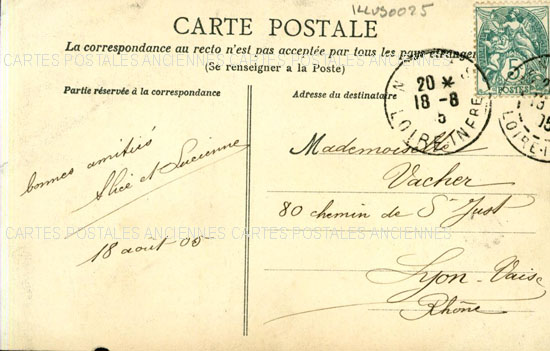 ILLUS0025
CARTE POSTALE
La correspondance au recto n'est pas acceptée par tous les pays étrangers
(Se renseigner a la Poste)
Partie réservée à la correspondance
bonnes amitiés
Alice et Lucienne
18 aout 05
Adresse du destinataire
Mademoiselle
Vacher
80 chemin de St Just
Lyon-Vaise
Rhône
5c
POSTES
20 *
18 - 8
5
LOIRE-INFRE
05
LOIRE-I
CARTES POSTALES ANCIENNES CARTES POSTALES ANCIENNES
CARTES POSTALES ANCIENNES CARTES POSTALES ANCIENNES